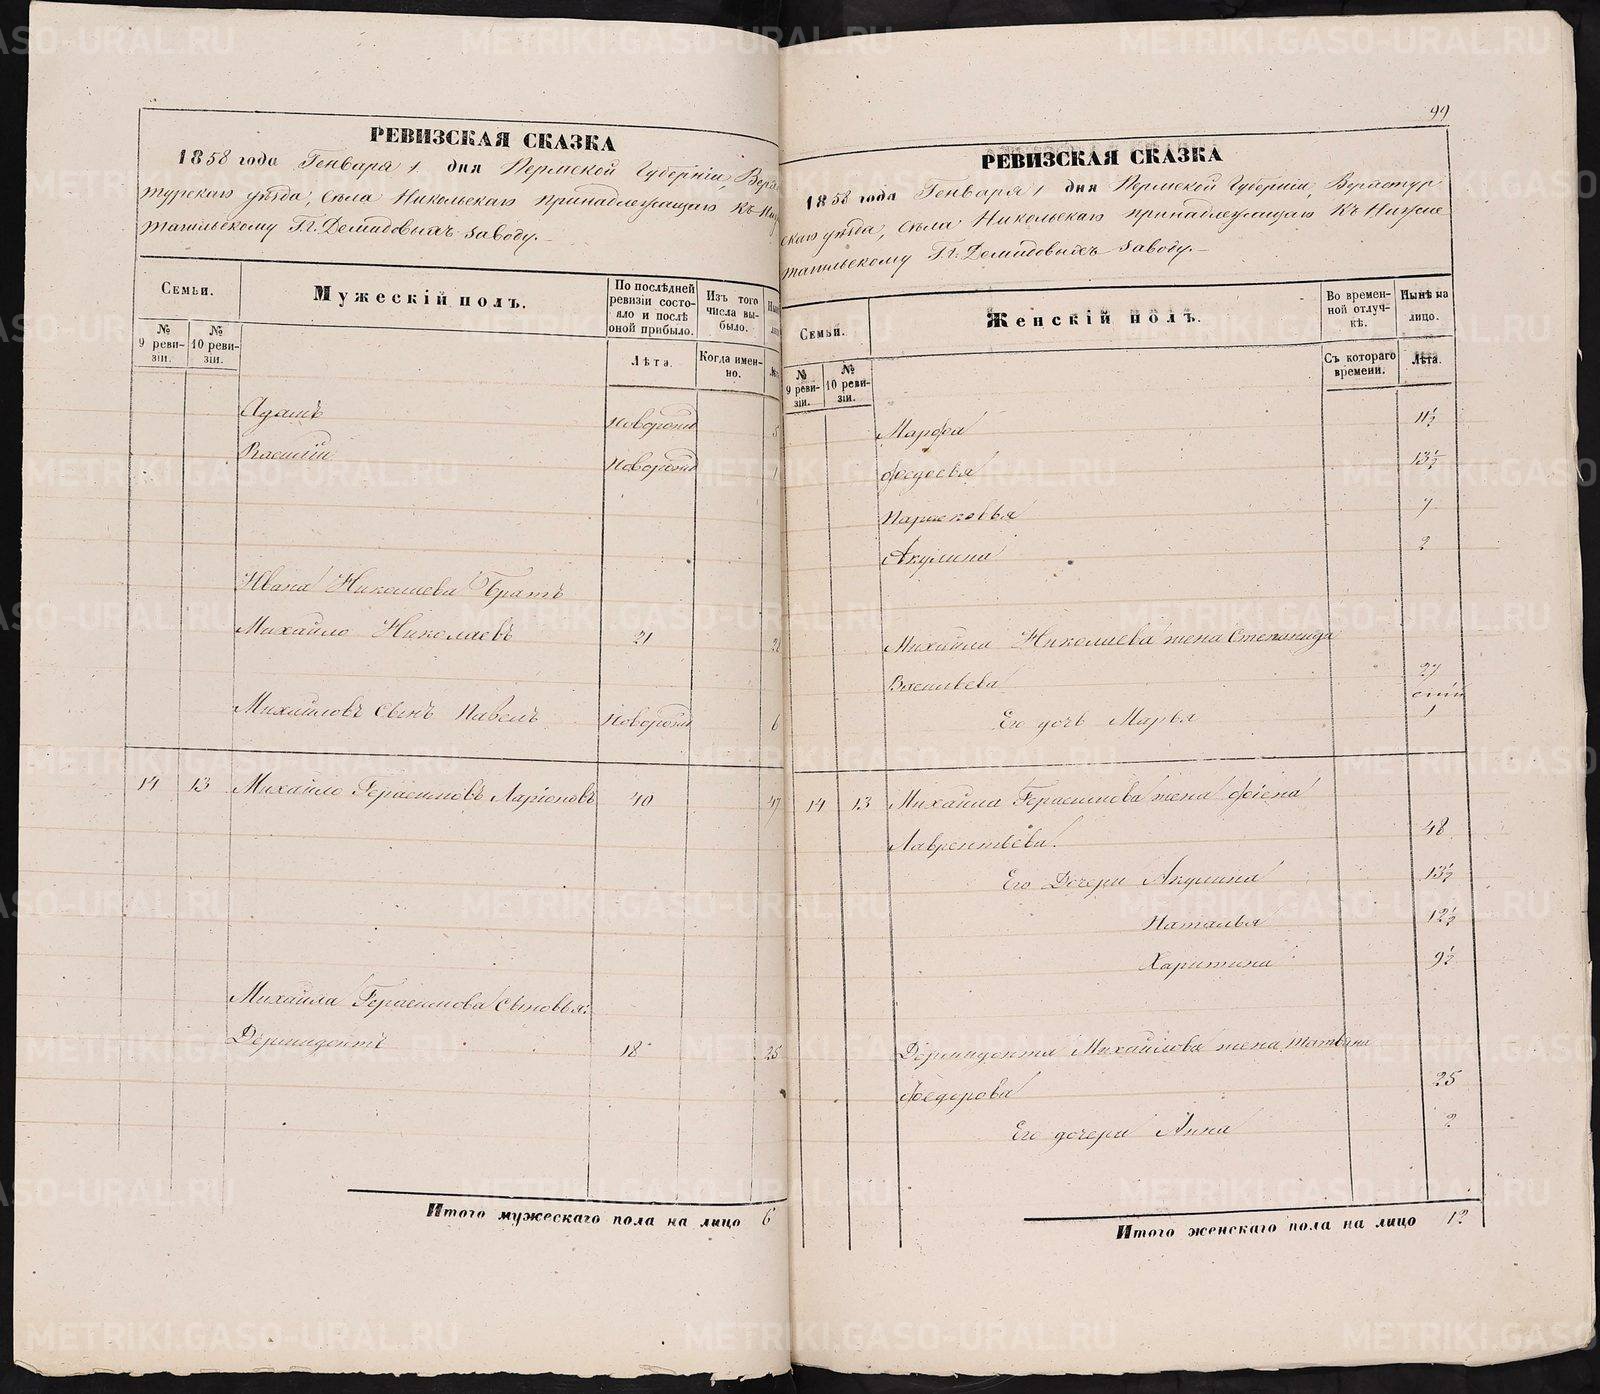 РЕВИЗСКАЯ СКАЗКА
1858 года Генваря 1 дня Пермской Губерніи, Верхо
турскаго уѣзда, Села Никольскаго принадлежащаго Къ Ниж
тагильскому Гг. Демидовыхъ заводу.
Семьи.
Мужескій полъ.
По послѣдней ревизіи состояло и послѣ оной прибыло.
Изъ того числа выбыло.
№ 9 ревизіи.
№ 10 ревизіи.
Лѣта.
Когда именно.
Адамъ Новорожд 5
Василій Новорожд 1
Ивана Николаева Братъ
Михайло Николаевъ 21
Михайловъ Сынъ Павелъ Новорожд 6
14 13 Михайло Герасимовъ Ларіоновъ 40 47
Михайла Герасимова Сыновья:
Дермидонтъ 18 25
Итого мужескаго пола на лицо 6
99
РЕВИЗСКАЯ СКАЗКА
1858 года Генваря 1 дня Пермской Губерніи, Верхотур
скаго уѣзда, Села Никольскаго принадлежащаго Къ Нижне
тагильскому Гг. Демидовыхъ заводу.
Семьи.
Женскій полъ.
Во временной отлучкѣ.
Нынѣ на лицо.
№ 9 ревизіи.
№ 10 ревизіи.
Съ котораго времени.
Лѣта.
Марфа 11½
Федосья 13½
Парасковья 7
Акулина 2
Михайла Николаева жена Степанида
Васильева 27
Его дочь Марья 1
14 13 Михайла Герасимова жена Фіена
Лаврентьева. 48
Его Дочери Акулина 13½
Наталья 12½
Харитина 9½
Дермидонта Михайлова жена Татьяна
Федорова 25
Его дочери Анна 2
Итого женскаго пола на лицо 12
METRIKI.GASO-URAL.RU